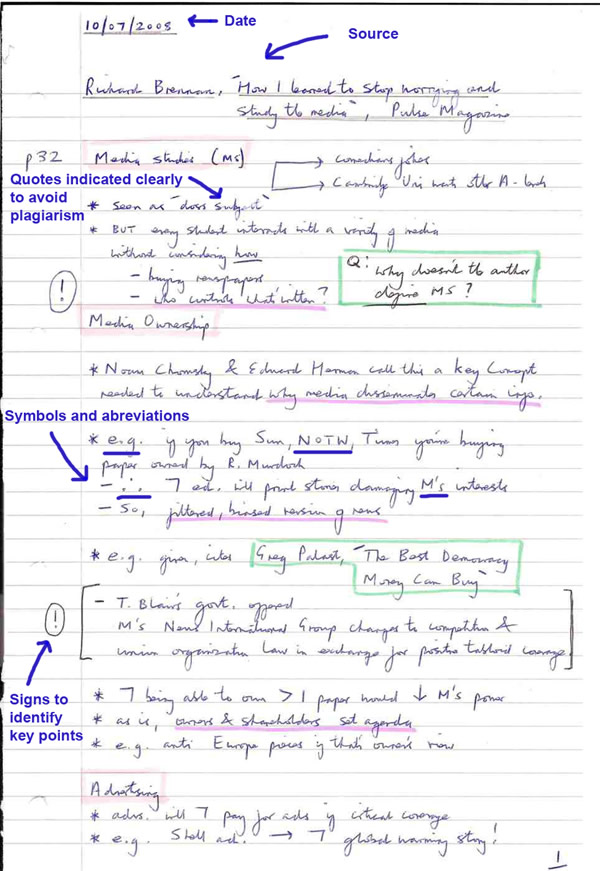 10/07/2008
Date
Source
Richard Brennan, "How I learned to stop worrying and
study the media", Pulse Magazine
p32 Media studies (MS)
→ comedians jokes
→ Cambridge Uni wants other A-levels
Quotes indicated clearly
to avoid
plagiarism
* seen as "doss subject"
* BUT every student interacts with a variety of media
without considering how
- buying newspapers
- who controls what's written?
!
Q: why doesn't the author
define MS?
Media Ownership
* Noam Chomsky & Edward Herman call this a key concept
needed to understand why media disseminates certain info.
Symbols and abreviations
* e.g. if you buy Sun, NOTW, Times you're buying
paper owned by R. Murdoch
- ∴ ¬ ed. will print stories damaging M's interests
- So, filtered, biased version of news
* e.g. given, cites Greg Palast, "The Best Democracy
Money Can Buy"
- T. Blair's govt. offered
M's News International Group changes to competition &
union organization law in exchange for positive tabloid coverage
!
Signs to
identify
key points
* ¬ being able to own > 1 paper would ↓ M's power
* as is, owners & shareholders set agenda
* e.g. anti Europe pieces if that's owner's view
Advertising
* advs. will ¬ pay for ads if critical coverage
* e.g. Shell ad. → ¬ global warming story!
1